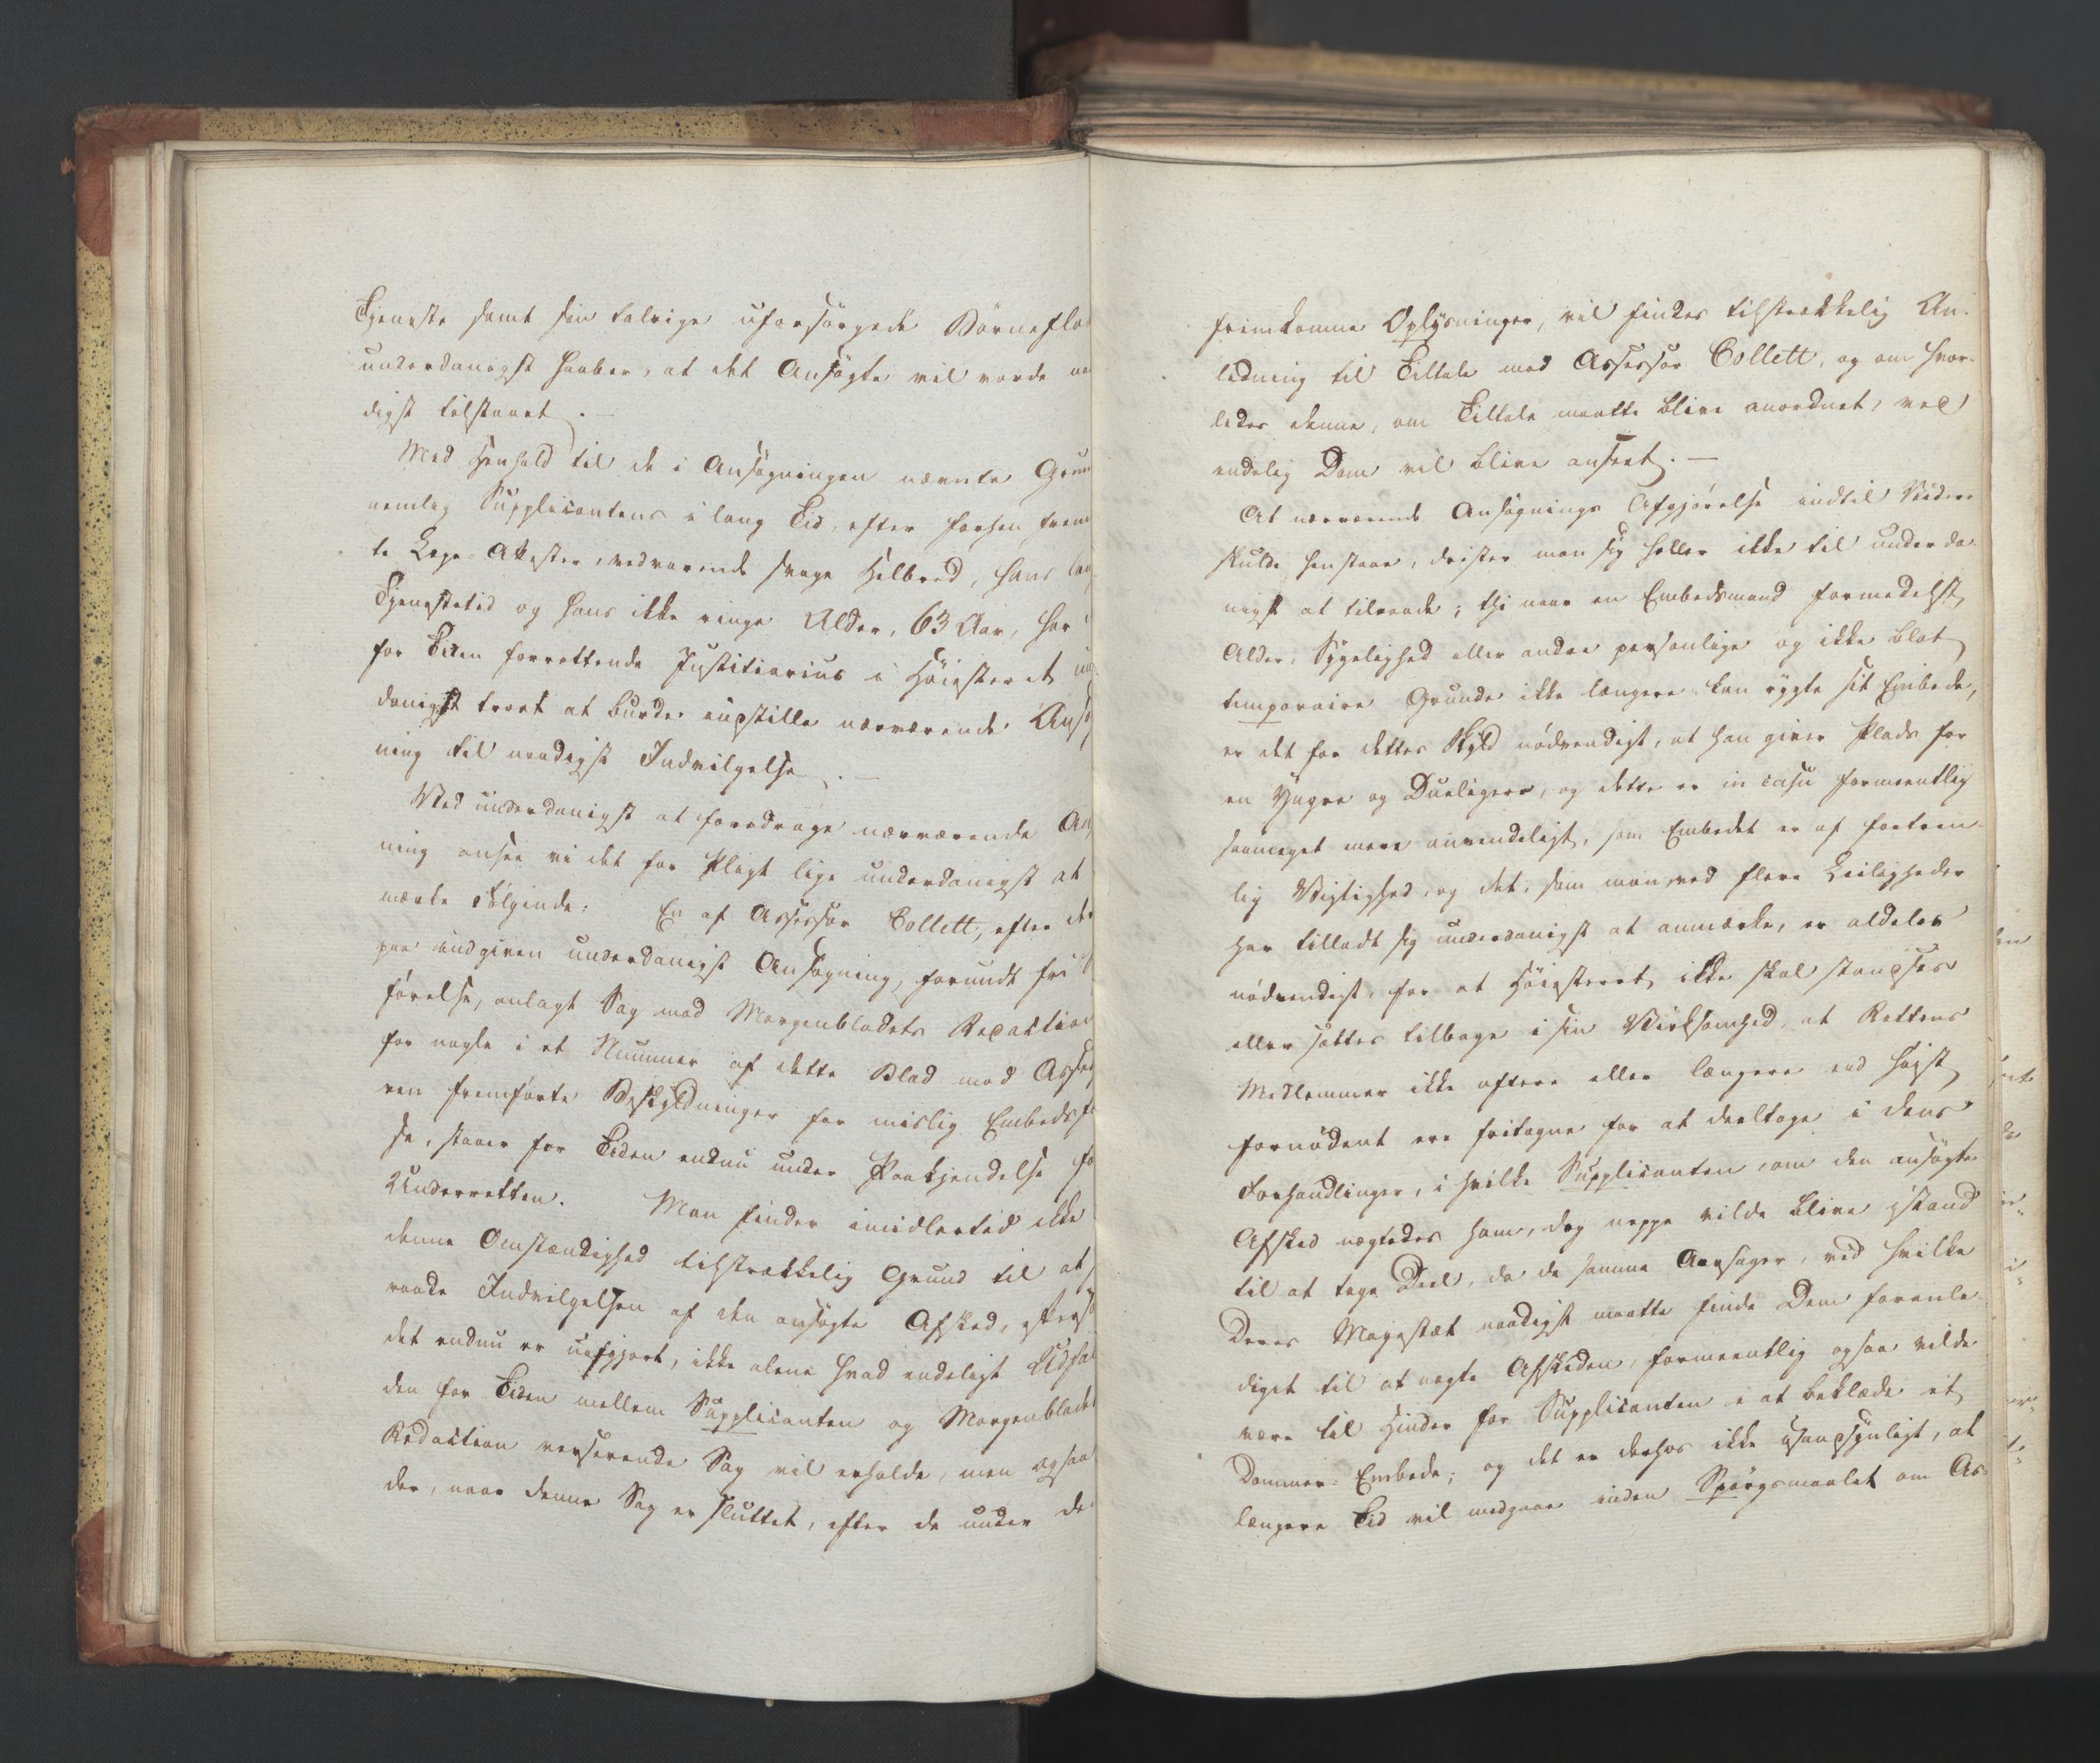 Tjeneste samt sin talrige uforsørgede Børneflo
underdanigst haaber, at det Ansøgte vil vorde naa
digst tilstaaet. —
Med Henhold til de i Ansøgningen nævnte Grun
nemlig Supplicantens i lang Tid, efter forhen frem
te Læge-Attester, vedvarende svage Helbred, hans lan
Tjenestetid og hans ikke ringe Alder, 63 Aar, har
for Tiden forrettende Justitiarius i Høiesteret un
danigst troet at burde indstille nærværende Ansø
ning til naadigst Indvilgelse. —
Ved underdanigst at foredrage nærværende An
ning ansee vi det for Pligt lige underdanigst at
mærke Følgende: En af Assessor Collett, efter der
paa indgiven underdanigst Ansøgning, forundt fri
førelse, anlagt Sag mod Morgenbladets Redaction
for nogle i et Nummer af dette Blad mod Asses
ren fremførte Beskyldninger for mislig Embedsfø
se, staaer for Tiden endnu under Paakjendelse fo
Underretten. Man finder imidlertid ikke
denne Omstændighed tilstrækkelig Grund til at
raade Indvilgelsen af den ansøgte Afsked, efters
det endnu er uafgjort, ikke alene hvad endeligt Udfal
den for Tiden mellem Supplicanten og Morgenbladet
Redaction verserende Sag vil erholde, men ogsaa
der, naar denne Sag er sluttet, efter de under de
fremkomne Oplysninger, vil findes tilstrækkelig An-
ledning til Tiltale mod Assessor Collett, og om hvor-
ledes denne, om Tiltale maatte blive anordnet, ved
endelig Dom vil blive anseet. —
At nærværende Ansøgnings Afgjørelse indtil Videre
skulde henstaae, drister man sig heller ikke til underda-
nigst at tilraade; thi naar en Embedsmand formedelst
Alder, Sygelighed eller andre personlige og ikke blot
temporaire Grunde ikke længere kan rygte sit Embede,
er det for dettes Skyld nødvendigt, at han giver Plads for
en Yngre og Dueligere, og dette er in casu formeentlig
saameget mere anvendeligt, som Embedet er af fortrin-
lig Vigtighed, og det, som man ved flere Leiligheder
har tilladt sig underdanigst at anmærke, er aldeles
nødvendigt, for at Høiesteret ikke skal standses
eller sættes tilbage i sin Virksomhed, at Rettens
Medlemmer ikke oftere eller længere end høist
fornødent ere fritagne for at deeltage i dens
Forhandlinger, i hvilke Supplicanten, om den ansøgte
Afsked nægtedes ham, dog neppe vilde blive istand
til at tage Deel, da de samme Aarsager, ved hvilke
Deres Majestæt naadigst maatte finde Dem foranle-
diget til at nægte Afskeden, formeentlig ogsaa vilde
være til Hinder for Supplicanten i at beklæde et
Dommer-Embede; og det er derhos ikke usandsynligt, at
længere Tid vil medgaae inden Spørgsmaalet om As-